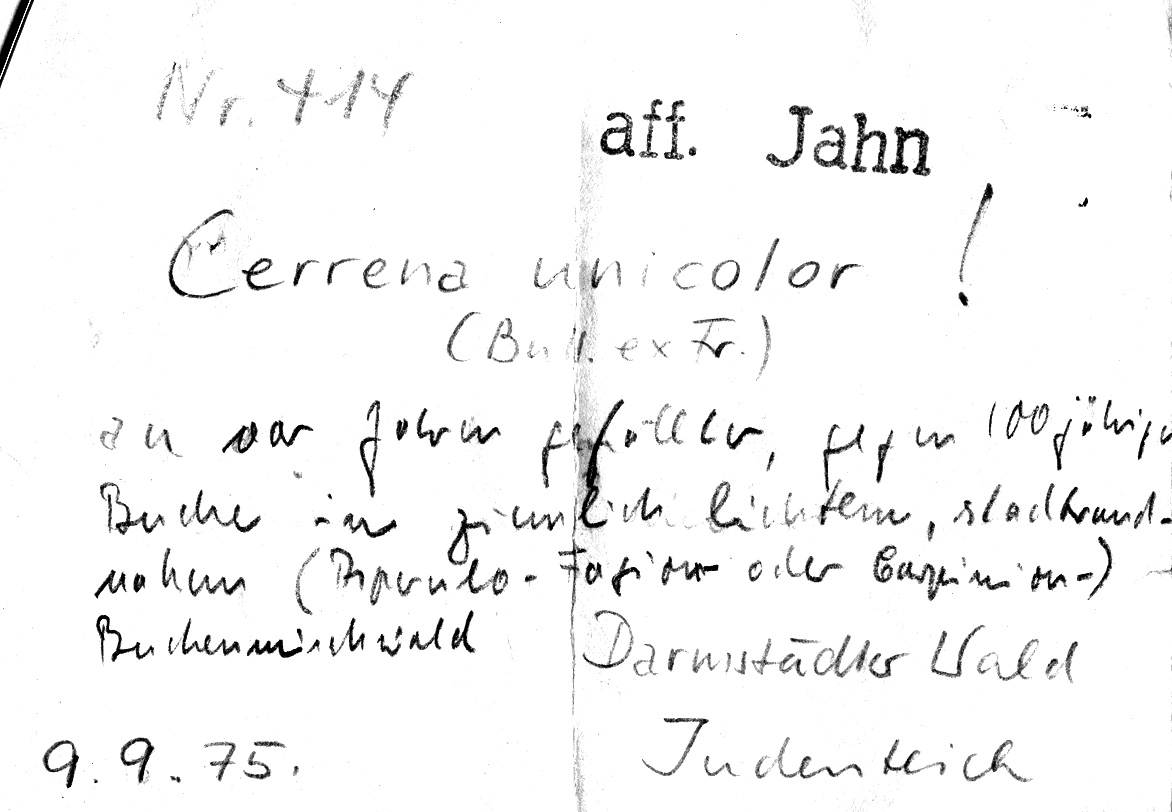 Nr. 414
aff. Jahn
Cerrena unicolor !
(Bull. ex Fr.)
an vor Jahren gefällter, gegen 100 jähriger
Buche in ziemlich lichtem, stadtrand-
nahem (Asperulo-Fagion oder Carpinion-)
Buchenmischwald Darmstädter Wald
9.9.75. Judenteich